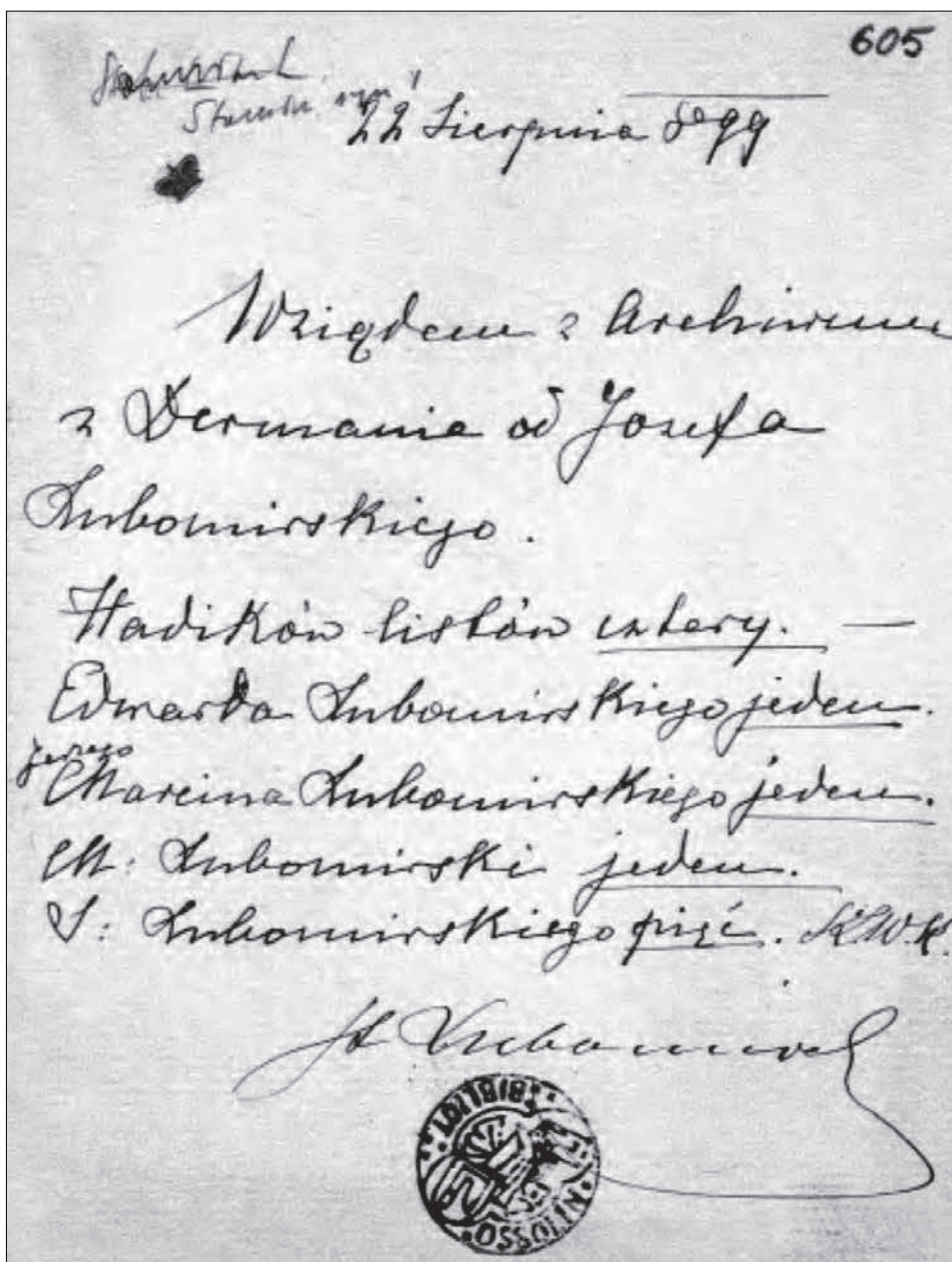 605
22 Sierpnia 899
Wziąłem z Archiwum
z Dermania od Jozefa
Lubomirskiego.
Hadików listów cztery. —
Edwarda Lubomirskiego jeden.
Jerzego
Marcina Lubomirskiego jeden.
M: Lubomirski jeden.
S: Lubomirskiego pięć.
St Lubomirski
BIBLIOT.
OSSOLIN